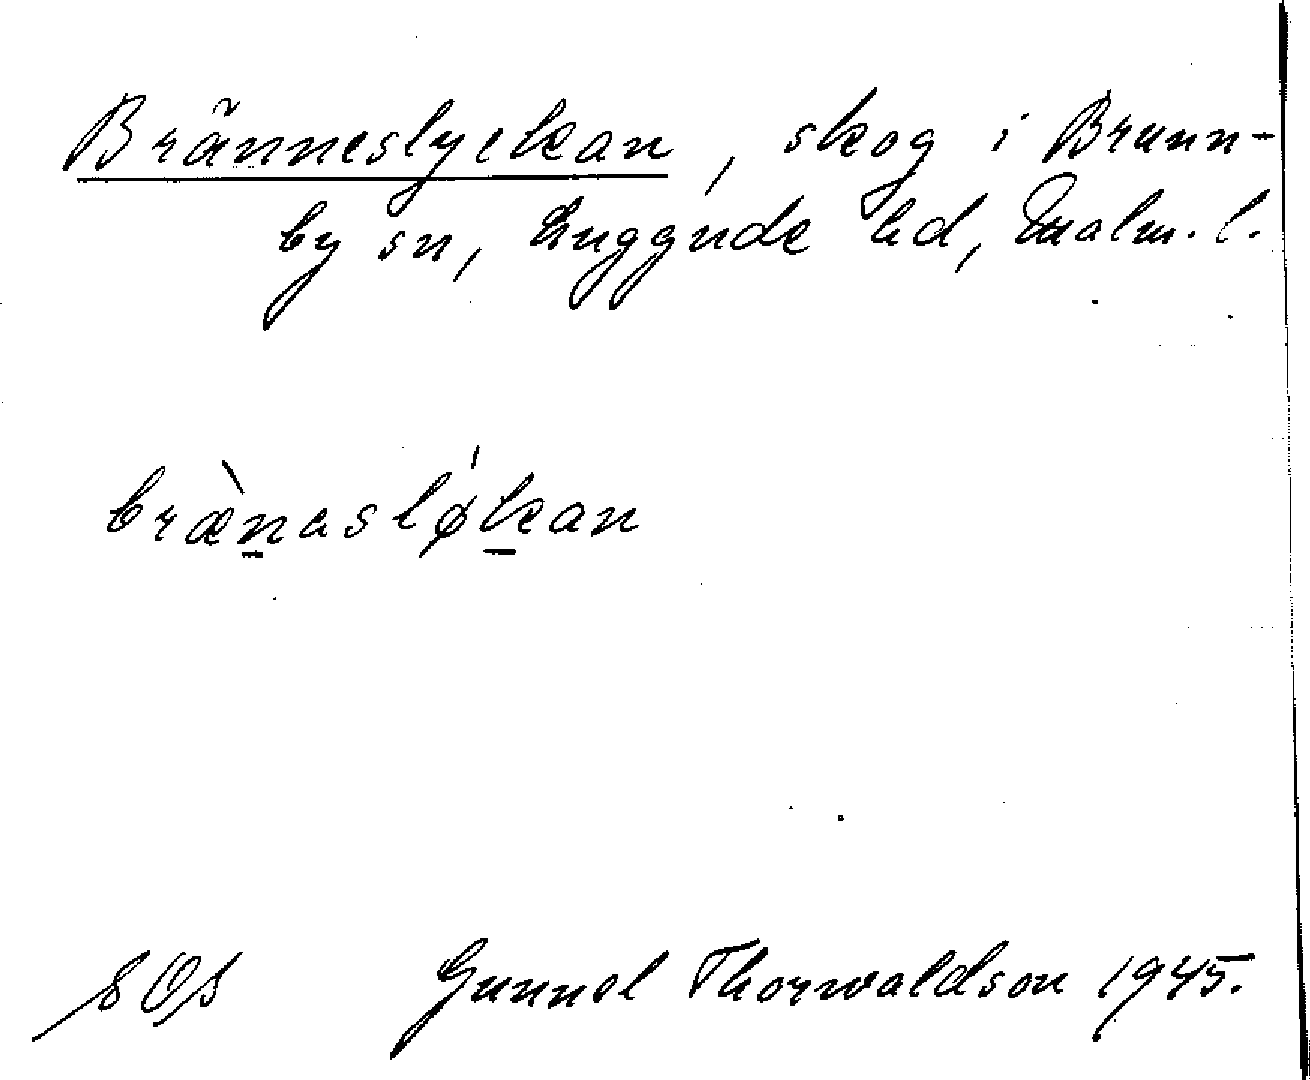 Bränneslyckan, skog i Brunn-
by sn, Luggude hd, Malm. l.
bræ̀n̲aslǿk̲an
SOS Gunnel Thorwaldson 1945.